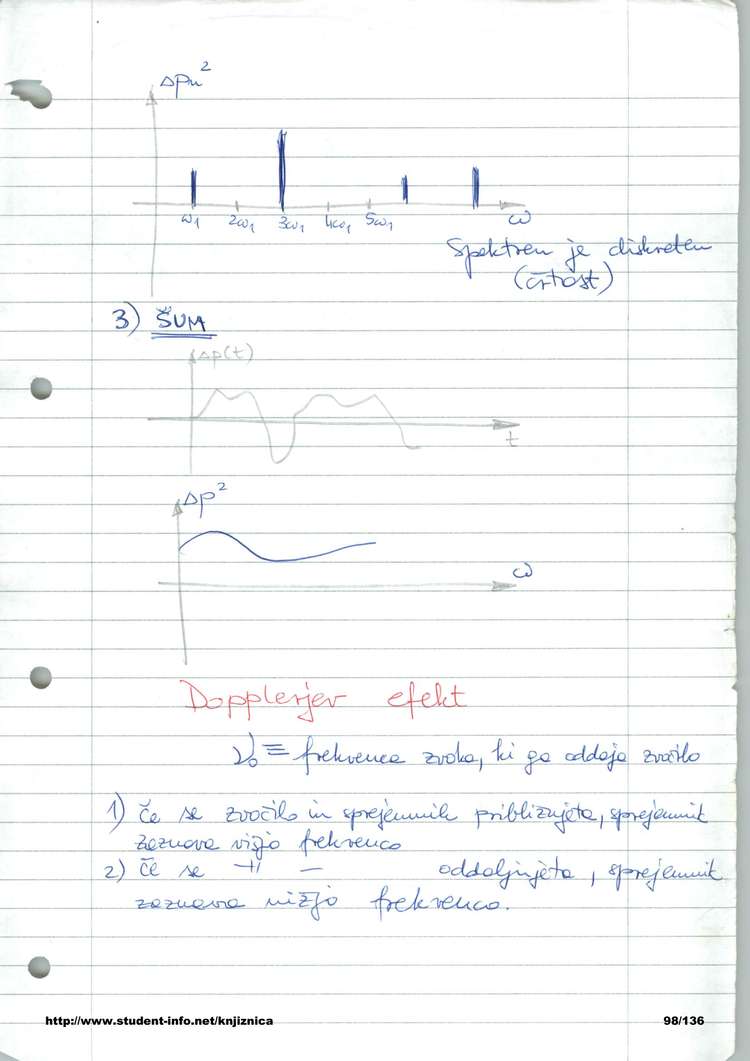 Δpn²
ω1 2ω1 3ω1 4ω1 5ω1 ω
Spekter je diskreten
(črtast)
3) ŠUM
Δp(t)
t
Δp²
ω
Dopplerjev efekt
ν0 ≡ frekvenca zvoka, ki ga oddaja zvočilo
1) če se zvočilo in sprejemnik približujeta, sprejemnik
zaznava višjo frekvenco
2) če se –||– oddaljujeta, sprejemnik
zaznava nižjo frekvenco.
http://www.student-info.net/knjiznica 98/136